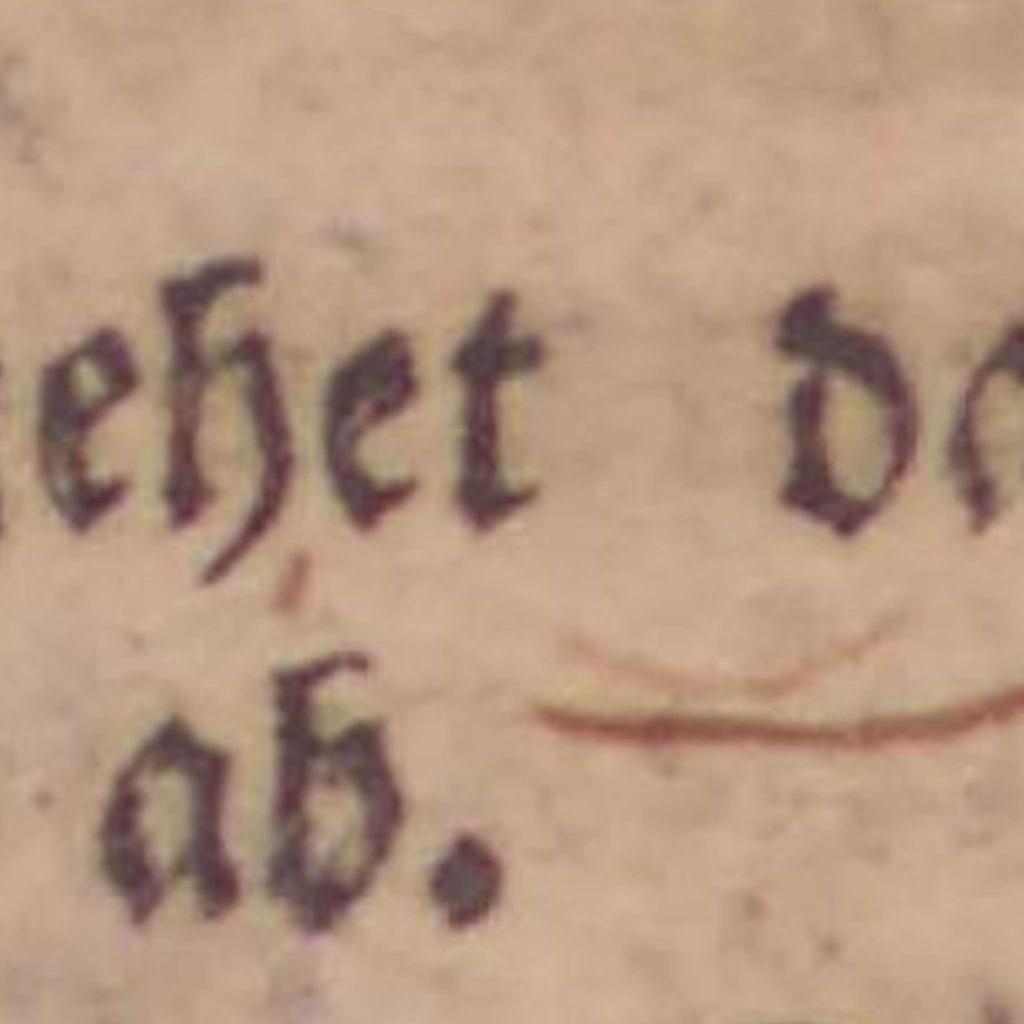 ehet
ab.